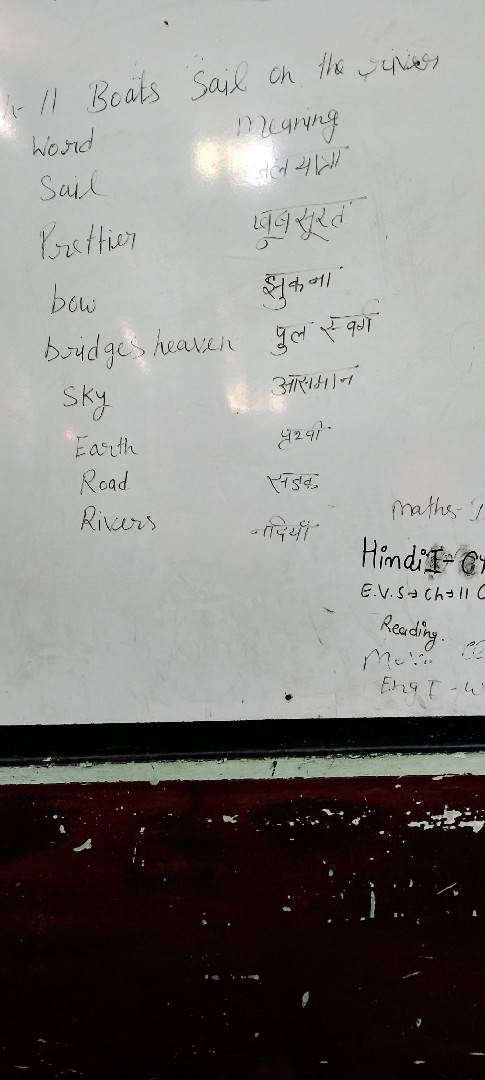 11 Boats Sail on the river
Word Meaning
Sail जल यात्रा
Prettier खूबसूरत
bow झुकना
bridges heaven पुल स्वर्ग
Sky आसमान
Earth पृथ्वी
Road सड़क
Rivers नदियाँ
Maths-
Hindi I-
E.V.S → Ch → 11
Reading.
Eng I -